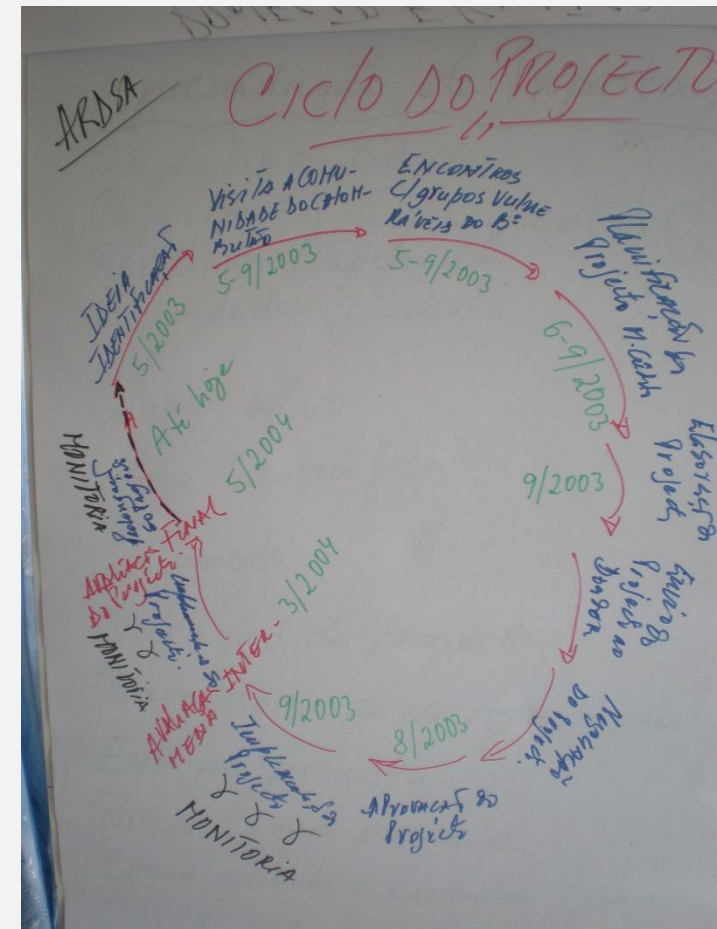 ARDSA
CICLO DO PROJECTO
IDEIA
IDENTIFICAÇÃO
5/2003
VISITA A COMU-
NIDADE DO CATOM-
BUTÃO
5-9/2003
ENCONTROS
C/grupos VULNE
RÁVEIS DO Bº
5-9/2003
Planificação do
Projecto
6-9/2003
Elaboração do
Projecto
9/2003
Envio do
Project ao
Doador
Negociação
Do Project.
APROVAÇÃO DO
Projecto
8/2003
Implementação
Projecto
MONITORIA
9/2003
AVALIAÇÃO INTER-
MEDIA
3/2004
Projecti.
MONITORIA
AVALIACÃO FINAL
DO Projecto.
5/2004
MONITORIA
Até hoje